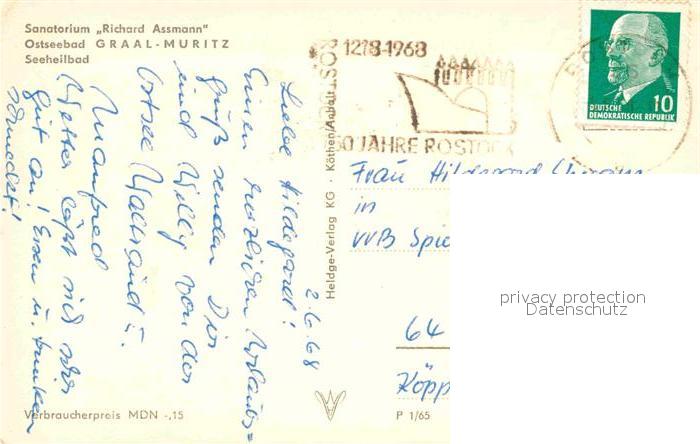 Sanatorium „Richard Assmann"
Ostseebad GRAAL-MURITZ
Seeheilbad
1218-1968
750 JAHRE ROSTOCK
ROSTOCK
DEUTSCHE
DEMOKRATISCHE REPUBLIK
10
2.6.68
Liebe Hildegard!
Einen herzlichen Urlaubs=
gruß senden Dir
und Willy von der
Ostsee Waltraud u.
Manfred
Wetter läßt sich sehr
gut an! Essen u. trinken
schmeckt!
Heldge-Verlag KG Köthen/Anhalt
Frau Hildegard
in
VVB Spie
64
Köpp
privacy protection
Datenschutz
Verbraucherpreis MDN -,15
P 1/65